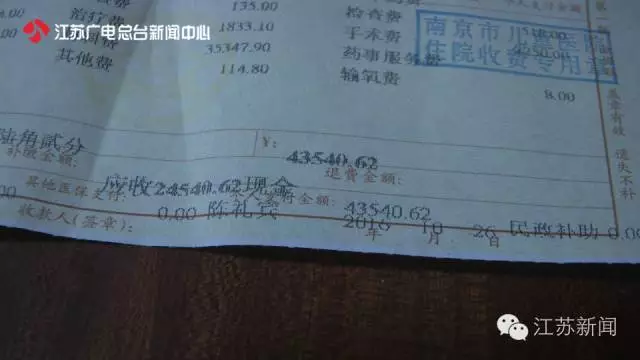 江苏广电总台新闻中心
费 135.00 检查费
治疗费 1833.10 手术费
35347.90 药事服务费
其他费 114.80 输氧费 8.00
南京市川 医
住院收费专用章
盖章有效 遗失不补
陆角贰分 ¥: 43540.62
补缴金额: 退费金额:
应收24540.62现金
其他医保支付: 金额: 43540.62
收款人(签章): 0.00 陈礼宾 2016年 10月 26日 民政补助 0.00
江苏新闻